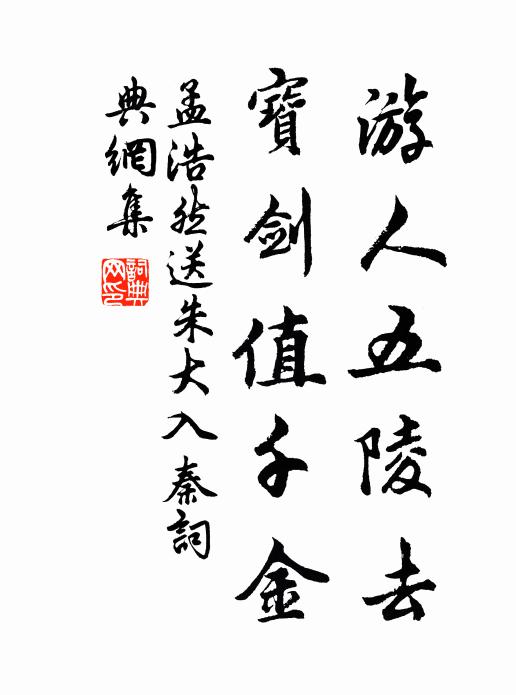 游人五陵去
寶劍值千金
孟浩然送朱大入秦詞
典網集
詞典
网印